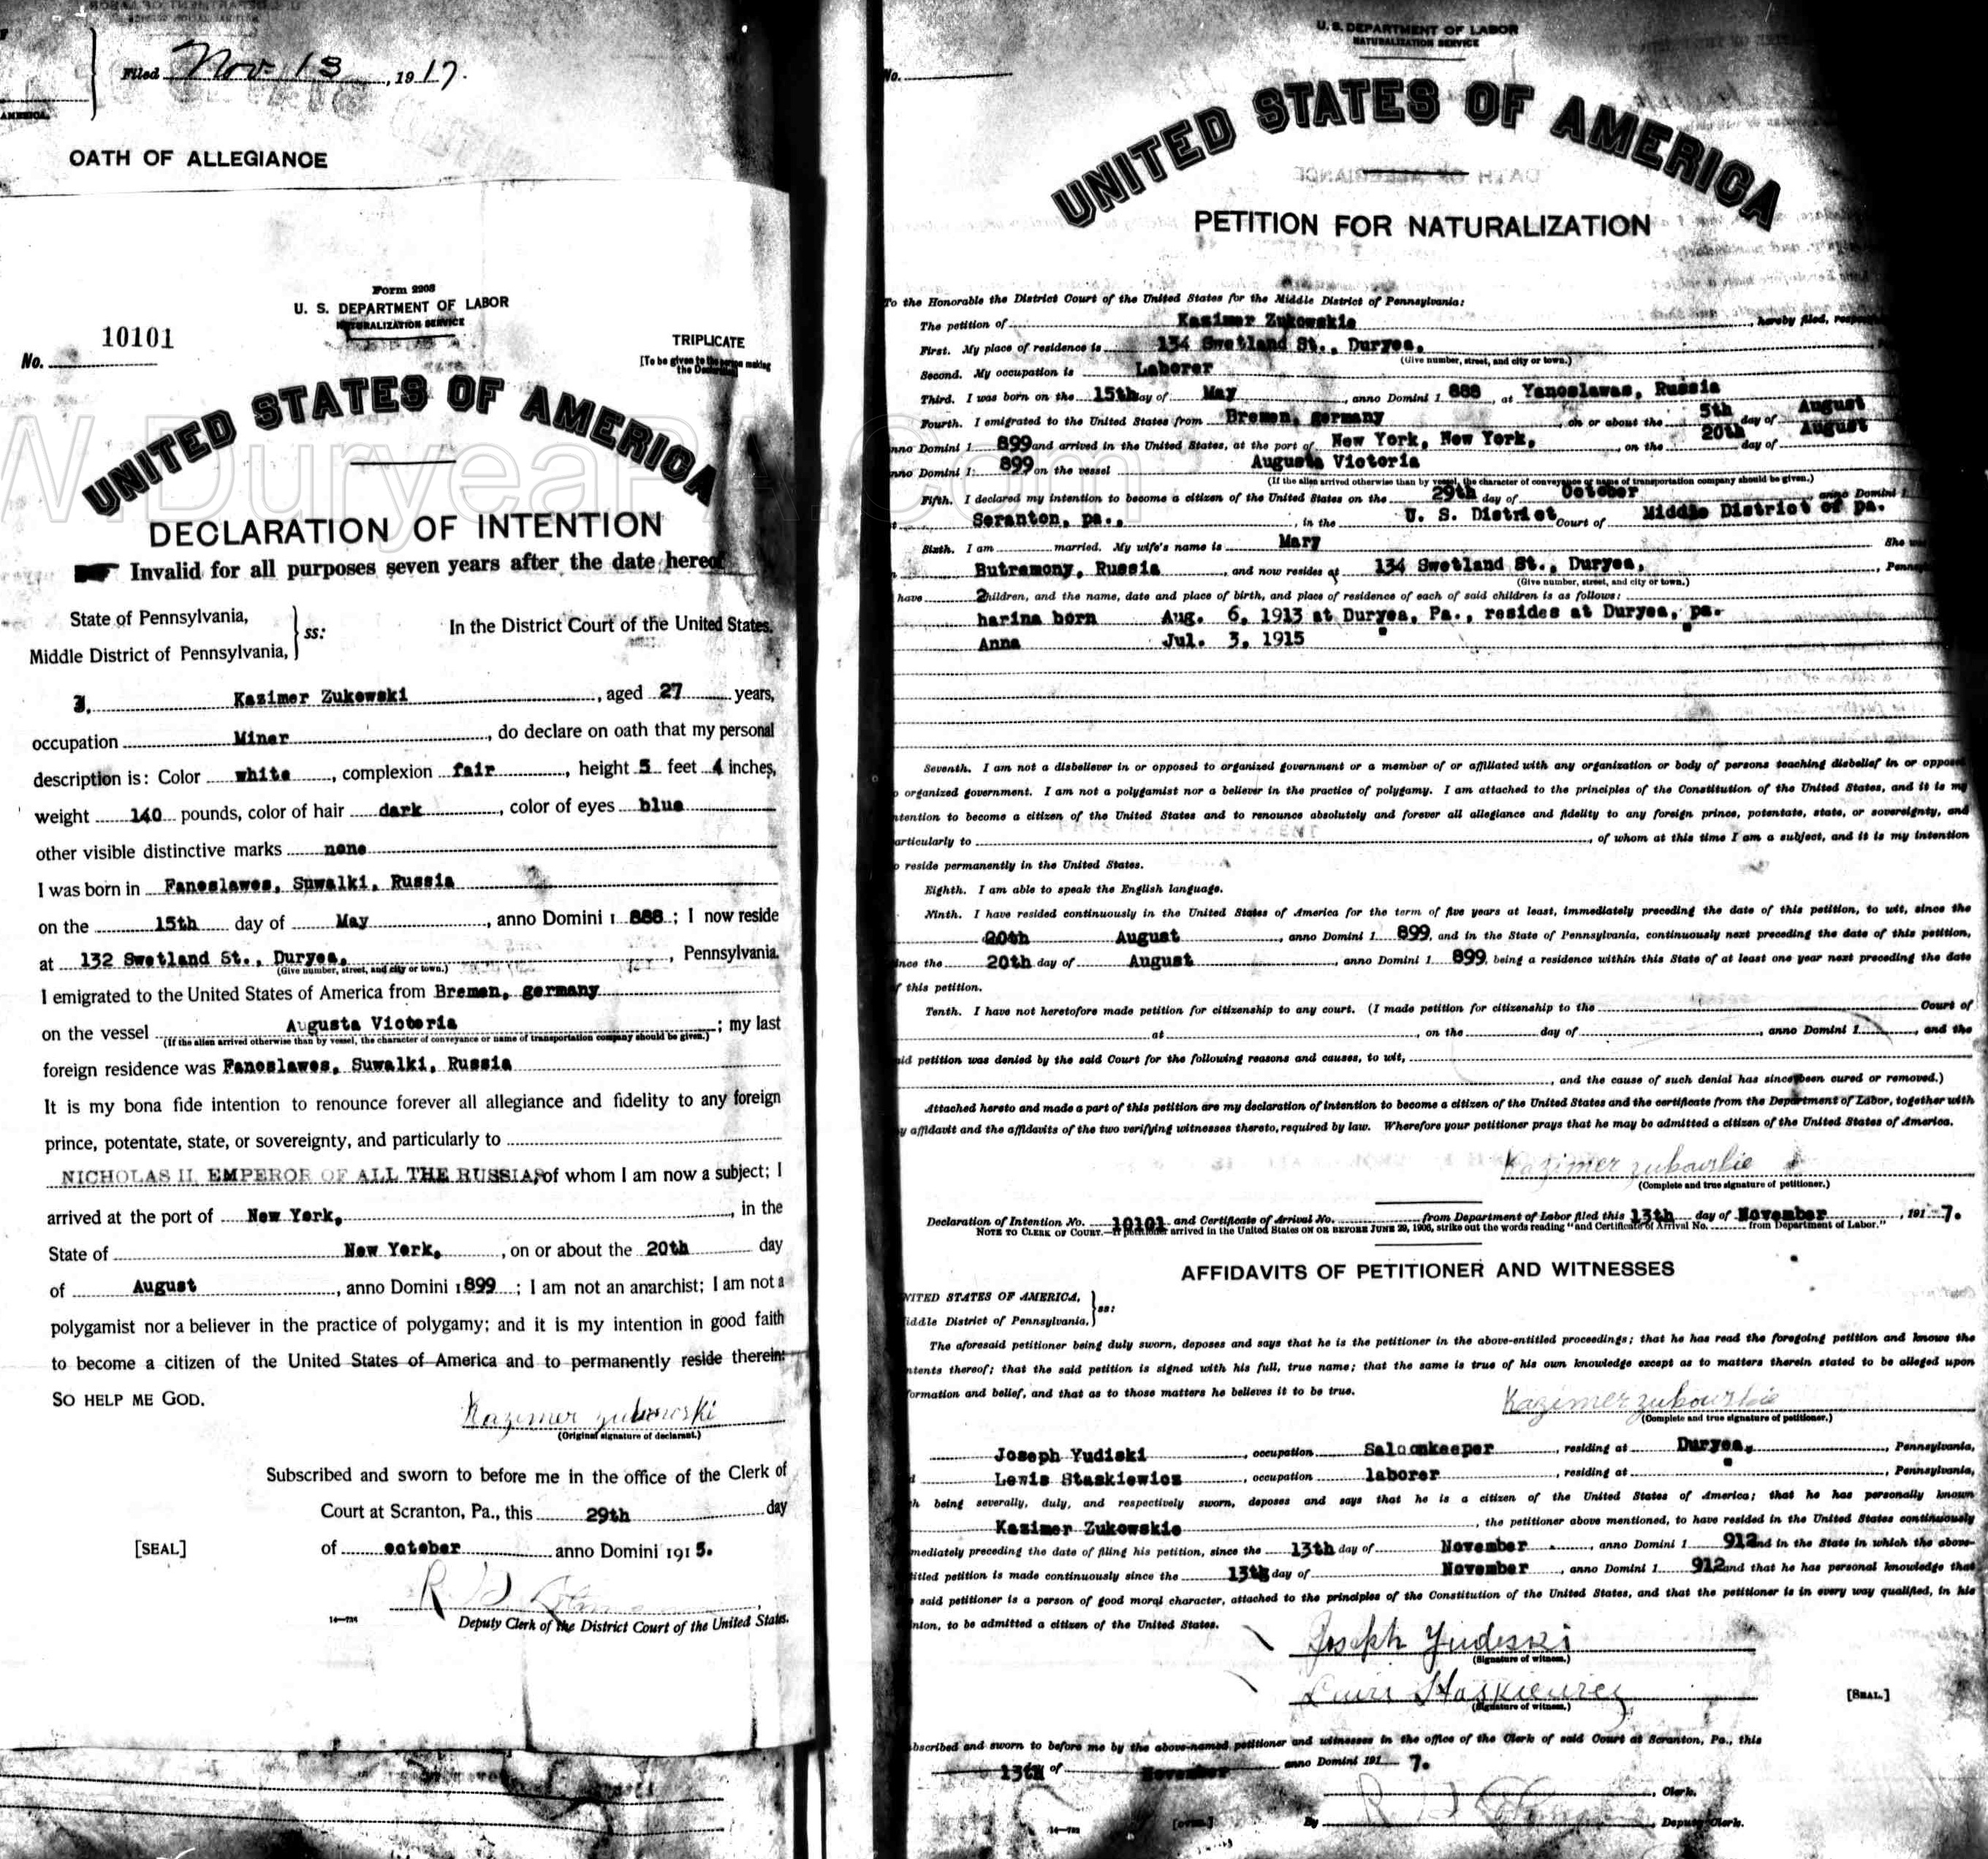 Filed Nov. 13, 1917.
AMERICA.
OATH OF ALLEGIANCE
Form 2203
U. S. DEPARTMENT OF LABOR
NATURALIZATION SERVICE
No. 10101
TRIPLICATE
[To be given to the person making the Declaration]
UNITED STATES OF AMERICA
W.DuryeaPA.Com
DECLARATION OF INTENTION
Invalid for all purposes seven years after the date hereof
State of Pennsylvania,
Middle District of Pennsylvania, } ss:
In the District Court of the United States.
I, Kazimer Zukowski, aged 27 years,
occupation Miner, do declare on oath that my personal
description is: Color white, complexion fair, height 5 feet 4 inches,
weight 140 pounds, color of hair dark, color of eyes blue
other visible distinctive marks none
I was born in Panoslawes, Suwalki, Russia
on the 15th day of May, anno Domini 1 888; I now reside
at 132 Swetland St., Duryea, Pennsylvania.
(Give number, street, and city or town.)
I emigrated to the United States of America from Bremen, germany
on the vessel Augusta Victoria; my last
(If the alien arrived otherwise than by vessel, the character of conveyance or name of transportation company should be given.)
foreign residence was Panoslawes, Suwalki, Russia
It is my bona fide intention to renounce forever all allegiance and fidelity to any foreign
prince, potentate, state, or sovereignty, and particularly to
NICHOLAS II, EMPEROR OF ALL THE RUSSIAS, of whom I am now a subject; I
arrived at the port of New York, in the
State of New York, on or about the 20th day
of August, anno Domini 1 899; I am not an anarchist; I am not a
polygamist nor a believer in the practice of polygamy; and it is my intention in good faith
to become a citizen of the United States of America and to permanently reside therein:
SO HELP ME GOD.
Kazimer Zukowski
(Original signature of declarant.)
Subscribed and sworn to before me in the office of the Clerk of
Court at Scranton, Pa., this 29th day
[SEAL] of october anno Domini 191 5.
Deputy Clerk of the District Court of the United States.
U. S. DEPARTMENT OF LABOR
NATURALIZATION SERVICE
No.
UNITED STATES OF AMERICA
PETITION FOR NATURALIZATION
To the Honorable the District Court of the United States for the Middle District of Pennsylvania:
The petition of Kazimer Zukowskie, hereby filed,
First. My place of residence is 134 Swetland St., Duryea,
(Give number, street, and city or town.)
Second. My occupation is Laborer
Third. I was born on the 15th day of May, anno Domini 1 888, at Yanoslawas, Russia
Fourth. I emigrated to the United States from Bremen, germany, on or about the 5th day of August
anno Domini 1 899 and arrived in the United States, at the port of New York, New York, on the 20th day of August
anno Domini 1 899 on the vessel Augusta Victoria
(If the alien arrived otherwise than by vessel, the character of conveyance or name of transportation company should be given.)
Fifth. I declared my intention to become a citizen of the United States on the 29th day of October, anno Domini 1
Scranton, pa., in the U. S. District Court of Middle District of pa.
Sixth. I am married. My wife's name is Mary She
Butramony, Russia, and now resides at 134 Swetland St., Duryea,
(Give number, street, and city or town.)
have 2 hildren, and the name, date and place of birth, and place of residence of each of said children is as follows:
harina born Aug. 6, 1913 at Duryea, Pa., resides at Duryea, pa.
Anna Jul. 3, 1915 " "
Seventh. I am not a disbeliever in or opposed to organized government or a member of or affiliated with any organization or body of persons teaching disbelief in or opposed
o organized government. I am not a polygamist nor a believer in the practice of polygamy. I am attached to the principles of the Constitution of the United States, and it is my
ntention to become a citizen of the United States and to renounce absolutely and forever all allegiance and fidelity to any foreign prince, potentate, state, or sovereignty, and
articularly to , of whom at this time I am a subject, and it is my intention
o reside permanently in the United States.
Eighth. I am able to speak the English language.
Ninth. I have resided continuously in the United States of America for the term of five years at least, immediately preceding the date of this petition, to wit, since the
20th August, anno Domini 1 899, and in the State of Pennsylvania, continuously next preceding the date of this petition,
ince the 20th day of August, anno Domini 1 899, being a residence within this State of at least one year next preceding the date
f this petition.
Tenth. I have not heretofore made petition for citizenship to any court. (I made petition for citizenship to the Court of
at , on the day of , anno Domini 1 , and the
aid petition was denied by the said Court for the following reasons and causes, to wit,
, and the cause of such denial has since been cured or removed.)
Attached hereto and made a part of this petition are my declaration of intention to become a citizen of the United States and the certificate from the Department of Labor, together with
y affidavit and the affidavits of the two verifying witnesses thereto, required by law. Wherefore your petitioner prays that he may be admitted a citizen of the United States of America.
Kazimer Zukowskie
(Complete and true signature of petitioner.)
Declaration of Intention No. 10101 and Certificate of Arrival No. from Department of Labor filed this 13th day of November, 191 7.
NOTE TO CLERK OF COURT.—If petitioner arrived in the United States ON OR BEFORE JUNE 29, 1906, strike out the words reading "and Certificate of Arrival No. from Department of Labor."
AFFIDAVITS OF PETITIONER AND WITNESSES
NITED STATES OF AMERICA,
iddle District of Pennsylvania, } ss:
The aforesaid petitioner being duly sworn, deposes and says that he is the petitioner in the above-entitled proceedings; that he has read the foregoing petition and knows the
ntents thereof; that the said petition is signed with his full, true name; that the same is true of his own knowledge except as to matters therein stated to be alleged upon
formation and belief, and that as to those matters he believes it to be true.
Kazimer Zukowskie
(Complete and true signature of petitioner.)
Joseph Yudiski, occupation Saloonkeeper, residing at Duryea, Pennsylvania,
Lewis Staskiewicz, occupation laborer, residing at ", Pennsylvania,
h being severally, duly, and respectively sworn, deposes and says that he is a citizen of the United States of America; that he has personally known
Kazimer Zukowskie, the petitioner above mentioned, to have resided in the United States continuously
mediately preceding the date of filing his petition, since the 13th day of November, anno Domini 1 912 and in the State in which the above-
titled petition is made continuously since the 13th day of November, anno Domini 1 912 and that he has personal knowledge that
said petitioner is a person of good moral character, attached to the principles of the Constitution of the United States, and that the petitioner is in every way qualified, in his
inion, to be admitted a citizen of the United States.
Joseph Yudeski
(Signature of witness.)
(Signature of witness.)
[SEAL.]
bscribed and sworn to before me by the above-named petitioner and witnesses in the office of the Clerk of said Court at Scranton, Pa., this
13th of November anno Domini 191 7.
, Clerk.
By , Deputy Clerk.